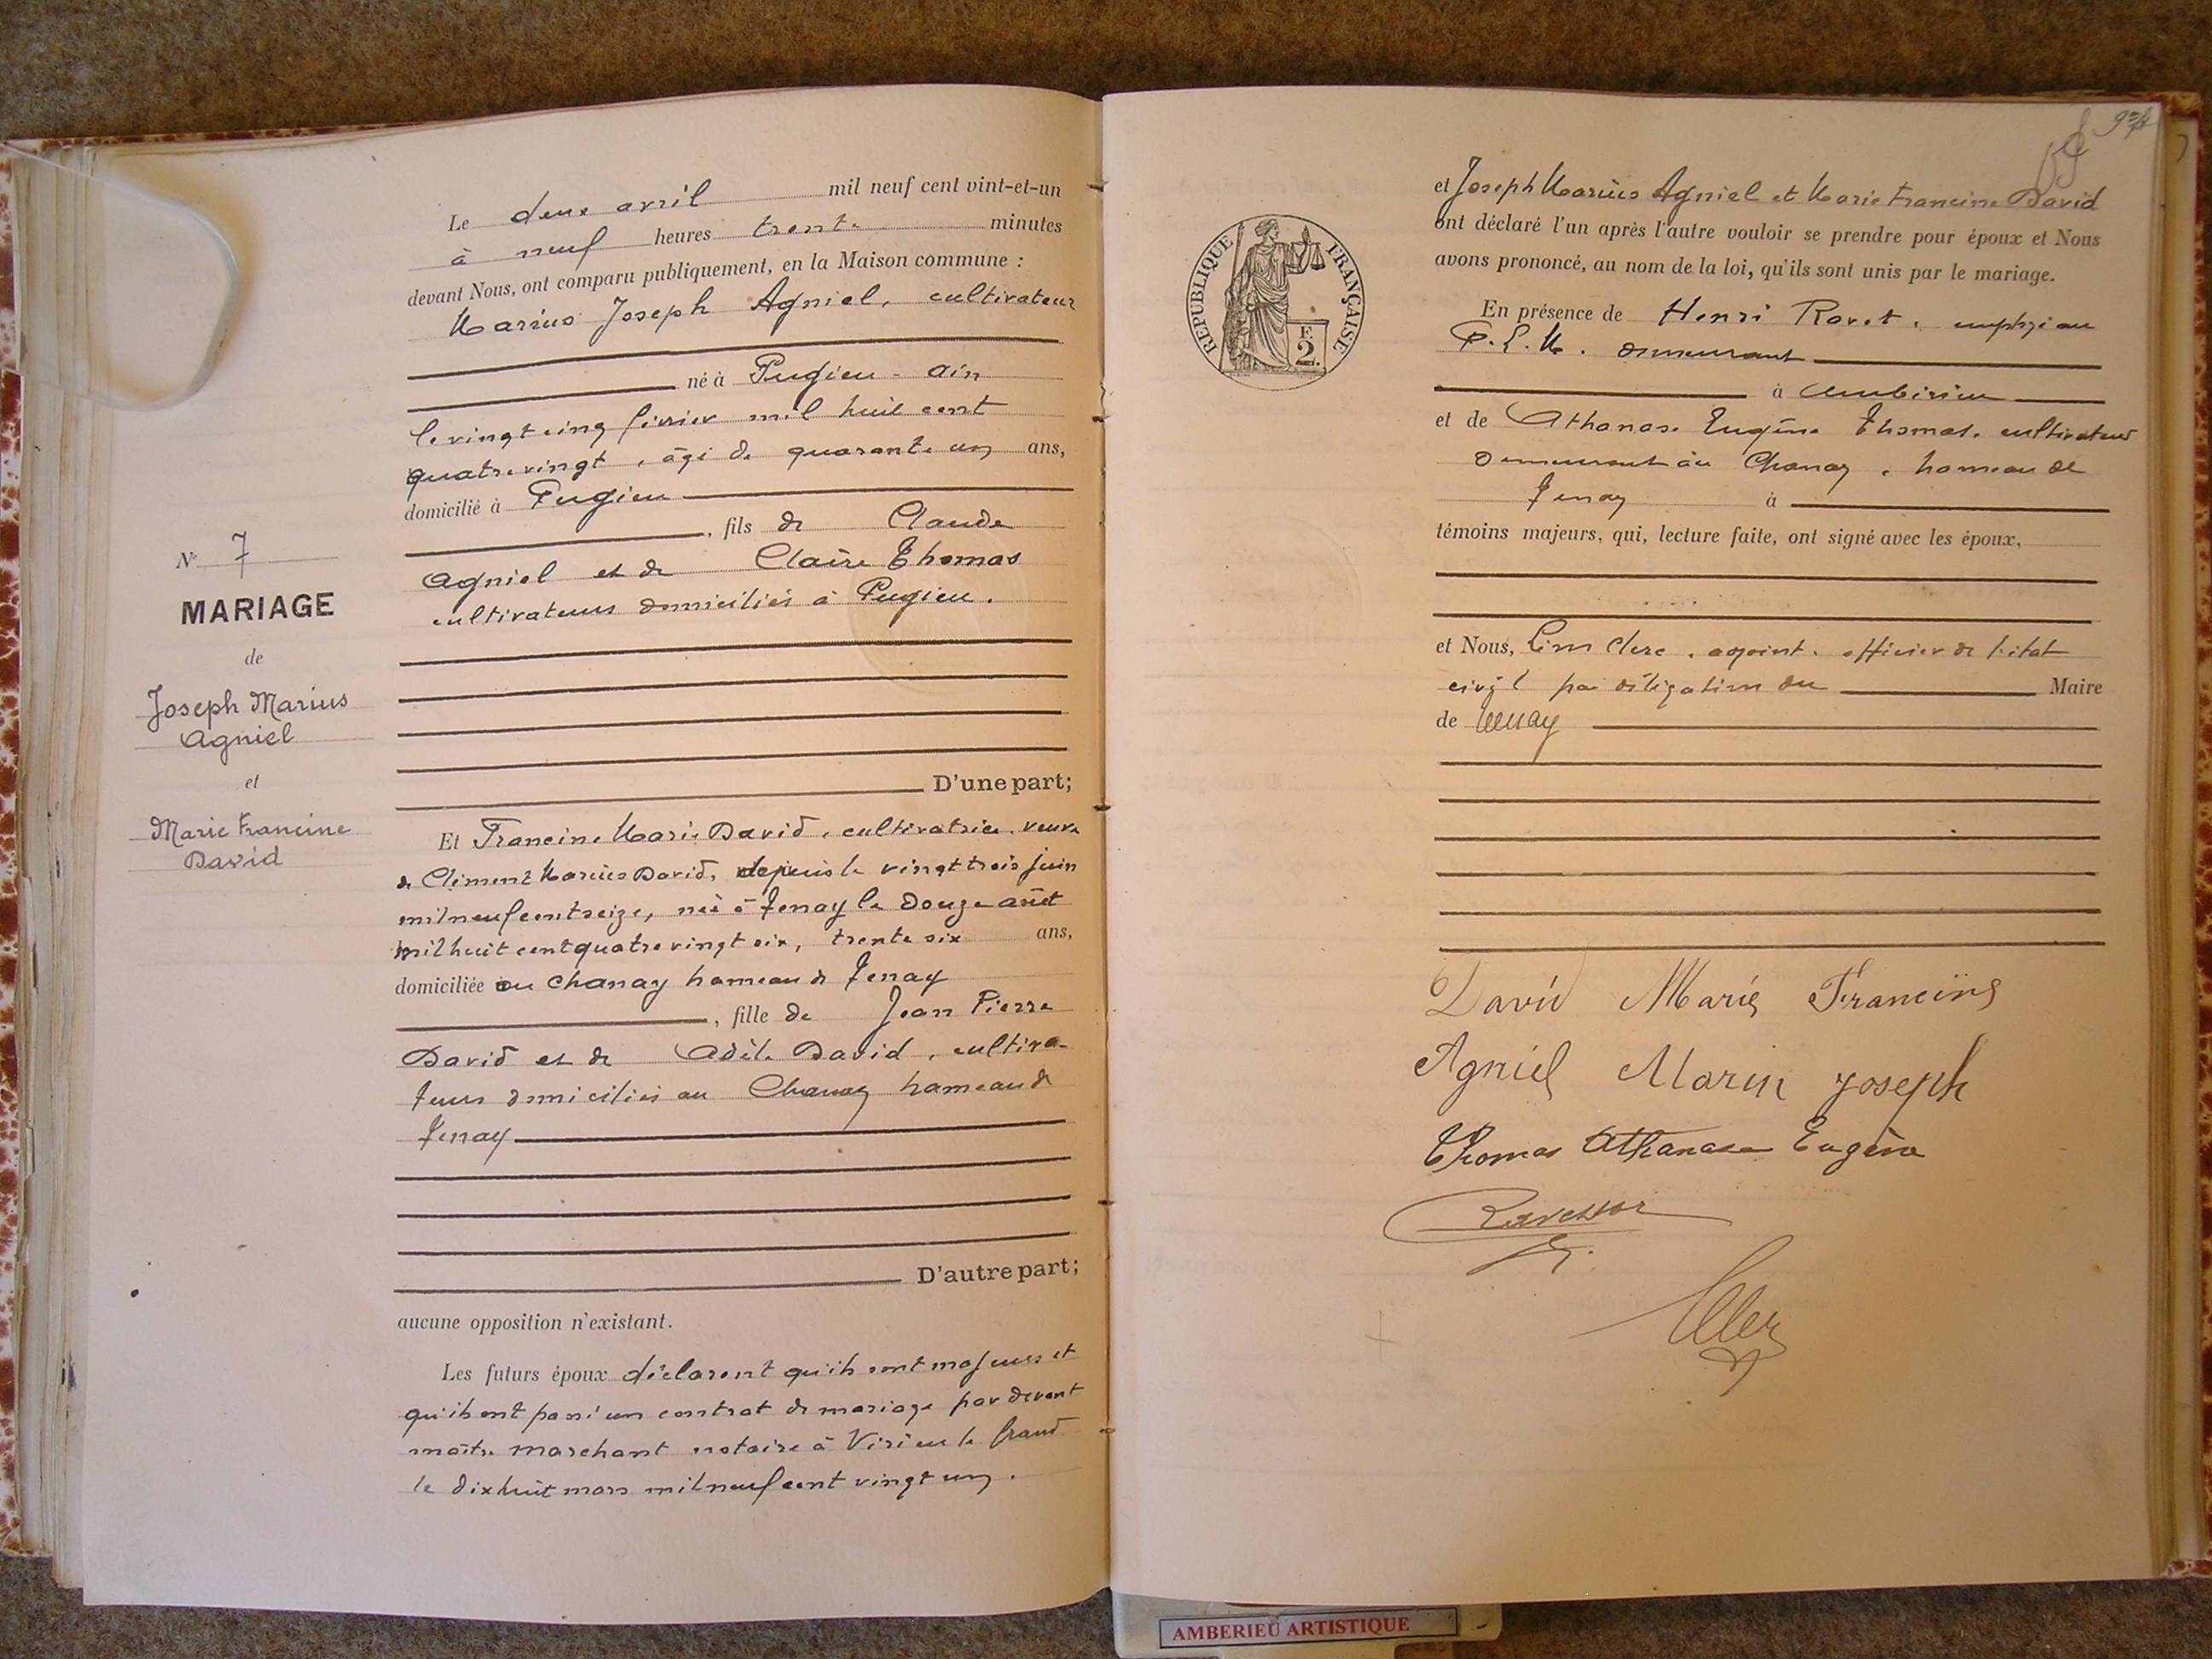 Le deux avril mil neuf cent vint-et-un
à neuf heures trente minutes
devant Nous, ont comparu publiquement, en la Maison commune :
Marius Joseph Agniel, cultivateur
né à Pugieu - Ain
le vingt cinq février mil huit cent
quatre vingt, âgé de quarante un ans,
domicilié à Pugieu
, fils de Claude
Agniel et de Claire Thomas
cultivateurs domiciliés à Pugieu.
D'une part;
Et Francine Marie David, cultivatrice, veuve
de Clément Marius David, depuis le vingt trois juin
mil neuf cent seize, née à Tenay le douze août
mil huit cent quatre vingt six, trente six ans,
domiciliée au Chanay hameau de Tenay
, fille de Jean Pierre
David et de Adèle David, cultiva-
teurs domiciliés au Chanay hameau de
Tenay
D'autre part;
aucune opposition n'existant.
Les futurs époux déclarent qu'ils sont majeurs et
qu'ils ont passé un contrat de mariage par devant
maître Marchant notaire à Virieu le Grand
le dix huit mars mil neuf cent vingt un.
N° 7
MARIAGE
de
Joseph Marius
Agniel
et
Marie Francine
David
RÉPUBLIQUE FRANÇAISE
2 F.
et Joseph Marius Agniel et Marie Francine David
ont déclaré l'un après l'autre vouloir se prendre pour époux et Nous
avons prononcé, au nom de la loi, qu'ils sont unis par le mariage.
En présence de Henri employé au
P. L. M. demeurant
à Ambérieu
et de Athanase Eugène Thomas, cultivateur
demeurant au Chanay, hameau de
Tenay à
témoins majeurs, qui, lecture faite, ont signé avec les époux,
et Nous, Clerc, adjoint, officier de l'état
civil par délégation du Maire
de Tenay
David Marie Francine
Agniel Marin Joseph
Thomas Athanase Eugène
AMBERIEU ARTISTIQUE